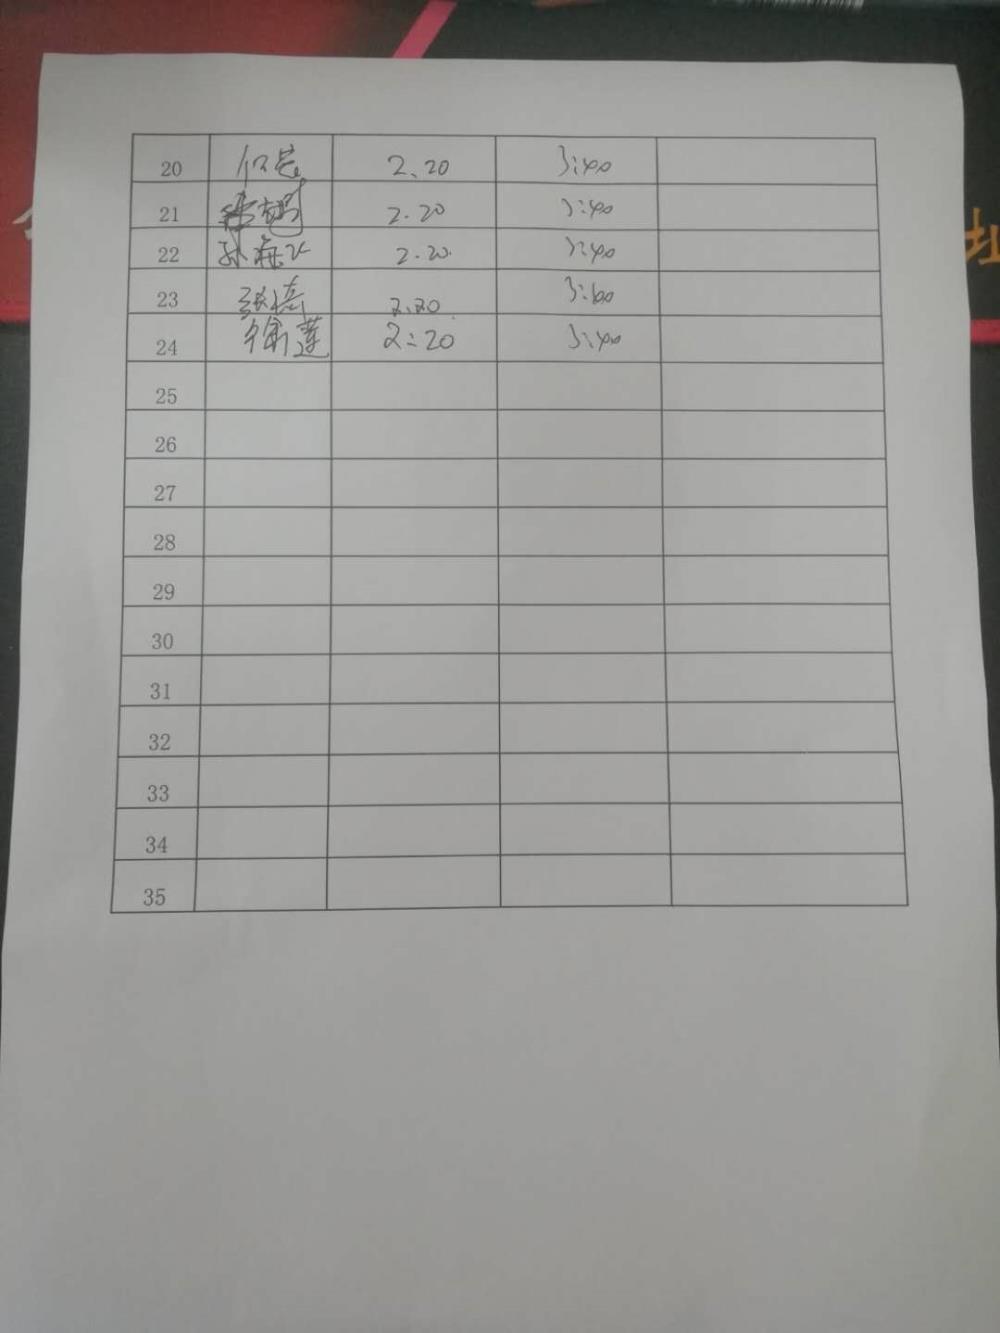 20 2、20 3:40
21 2.20 3:40
22 孙海 2.20. 3:40
23 张倩 2.20. 3:40
24 徐莲 2:20 3:40
25
26
27
28
29
30
31
32
33
34
35
址